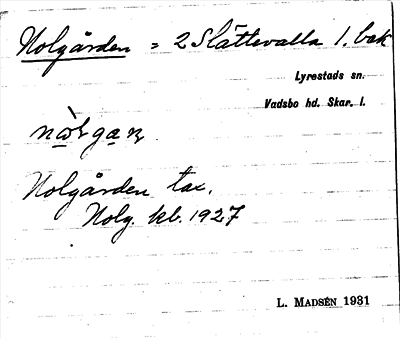 Nolgården = 2 Slättevalla 1. bak
Lyrestads sn.
Vadsbo hd. Skar. l.
Nolgården tax.
Nolg. kb. 1927
L. MADSÉN 1931